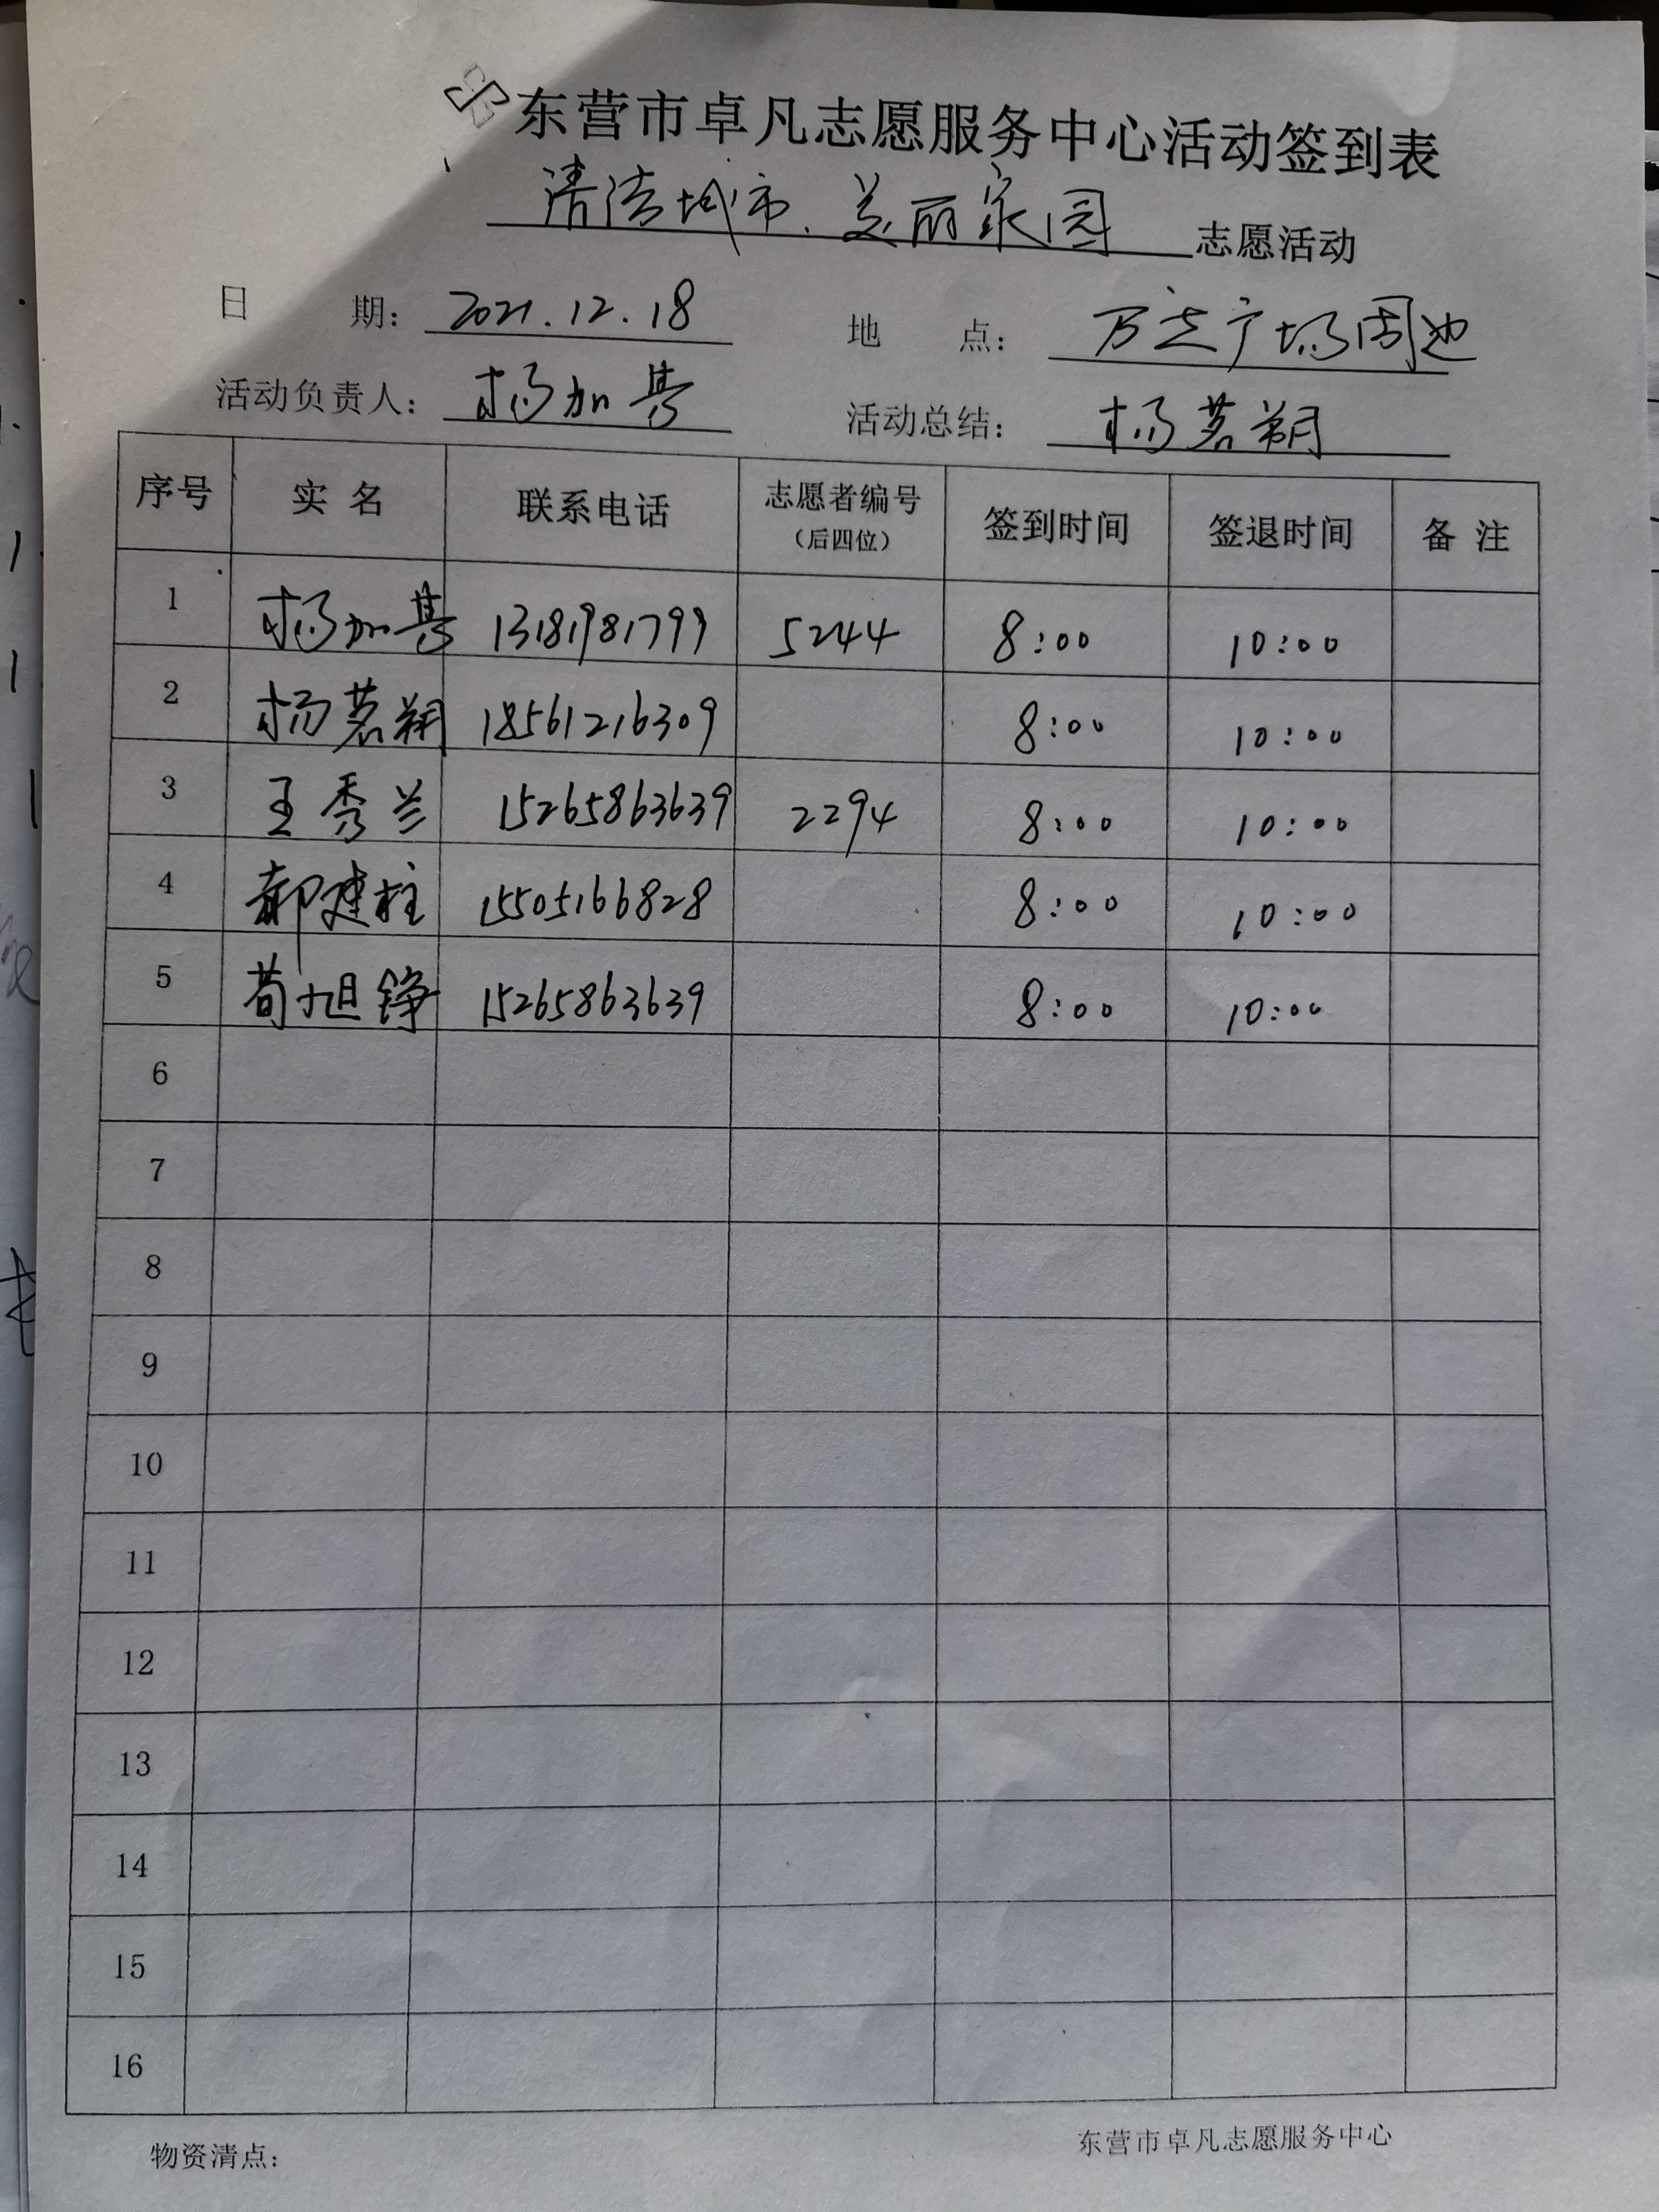 东营市卓凡志愿服务中心活动签到表
清洁城市、美丽家园 志愿活动
日 期： 2021.12.18 地 点： 万达广场周边
活动负责人： 杨加基 活动总结： 杨茗翔
序号 实 名 联系电话 志愿者编号（后四位） 签到时间 签退时间 备 注
1 杨加基 13181981799 5244 8:00 10:00
2 杨茗翔 18561216309 8:00 10:00
3 王秀兰 15265863639 2294 8:00 10:00
4 郝建柱 15505166828 8:00 10:00
5 荀旭铮 15265863639 8:00 10:00
6
7
8
9
10
11
12
13
14
15
16
物资清点： 东营市卓凡志愿服务中心